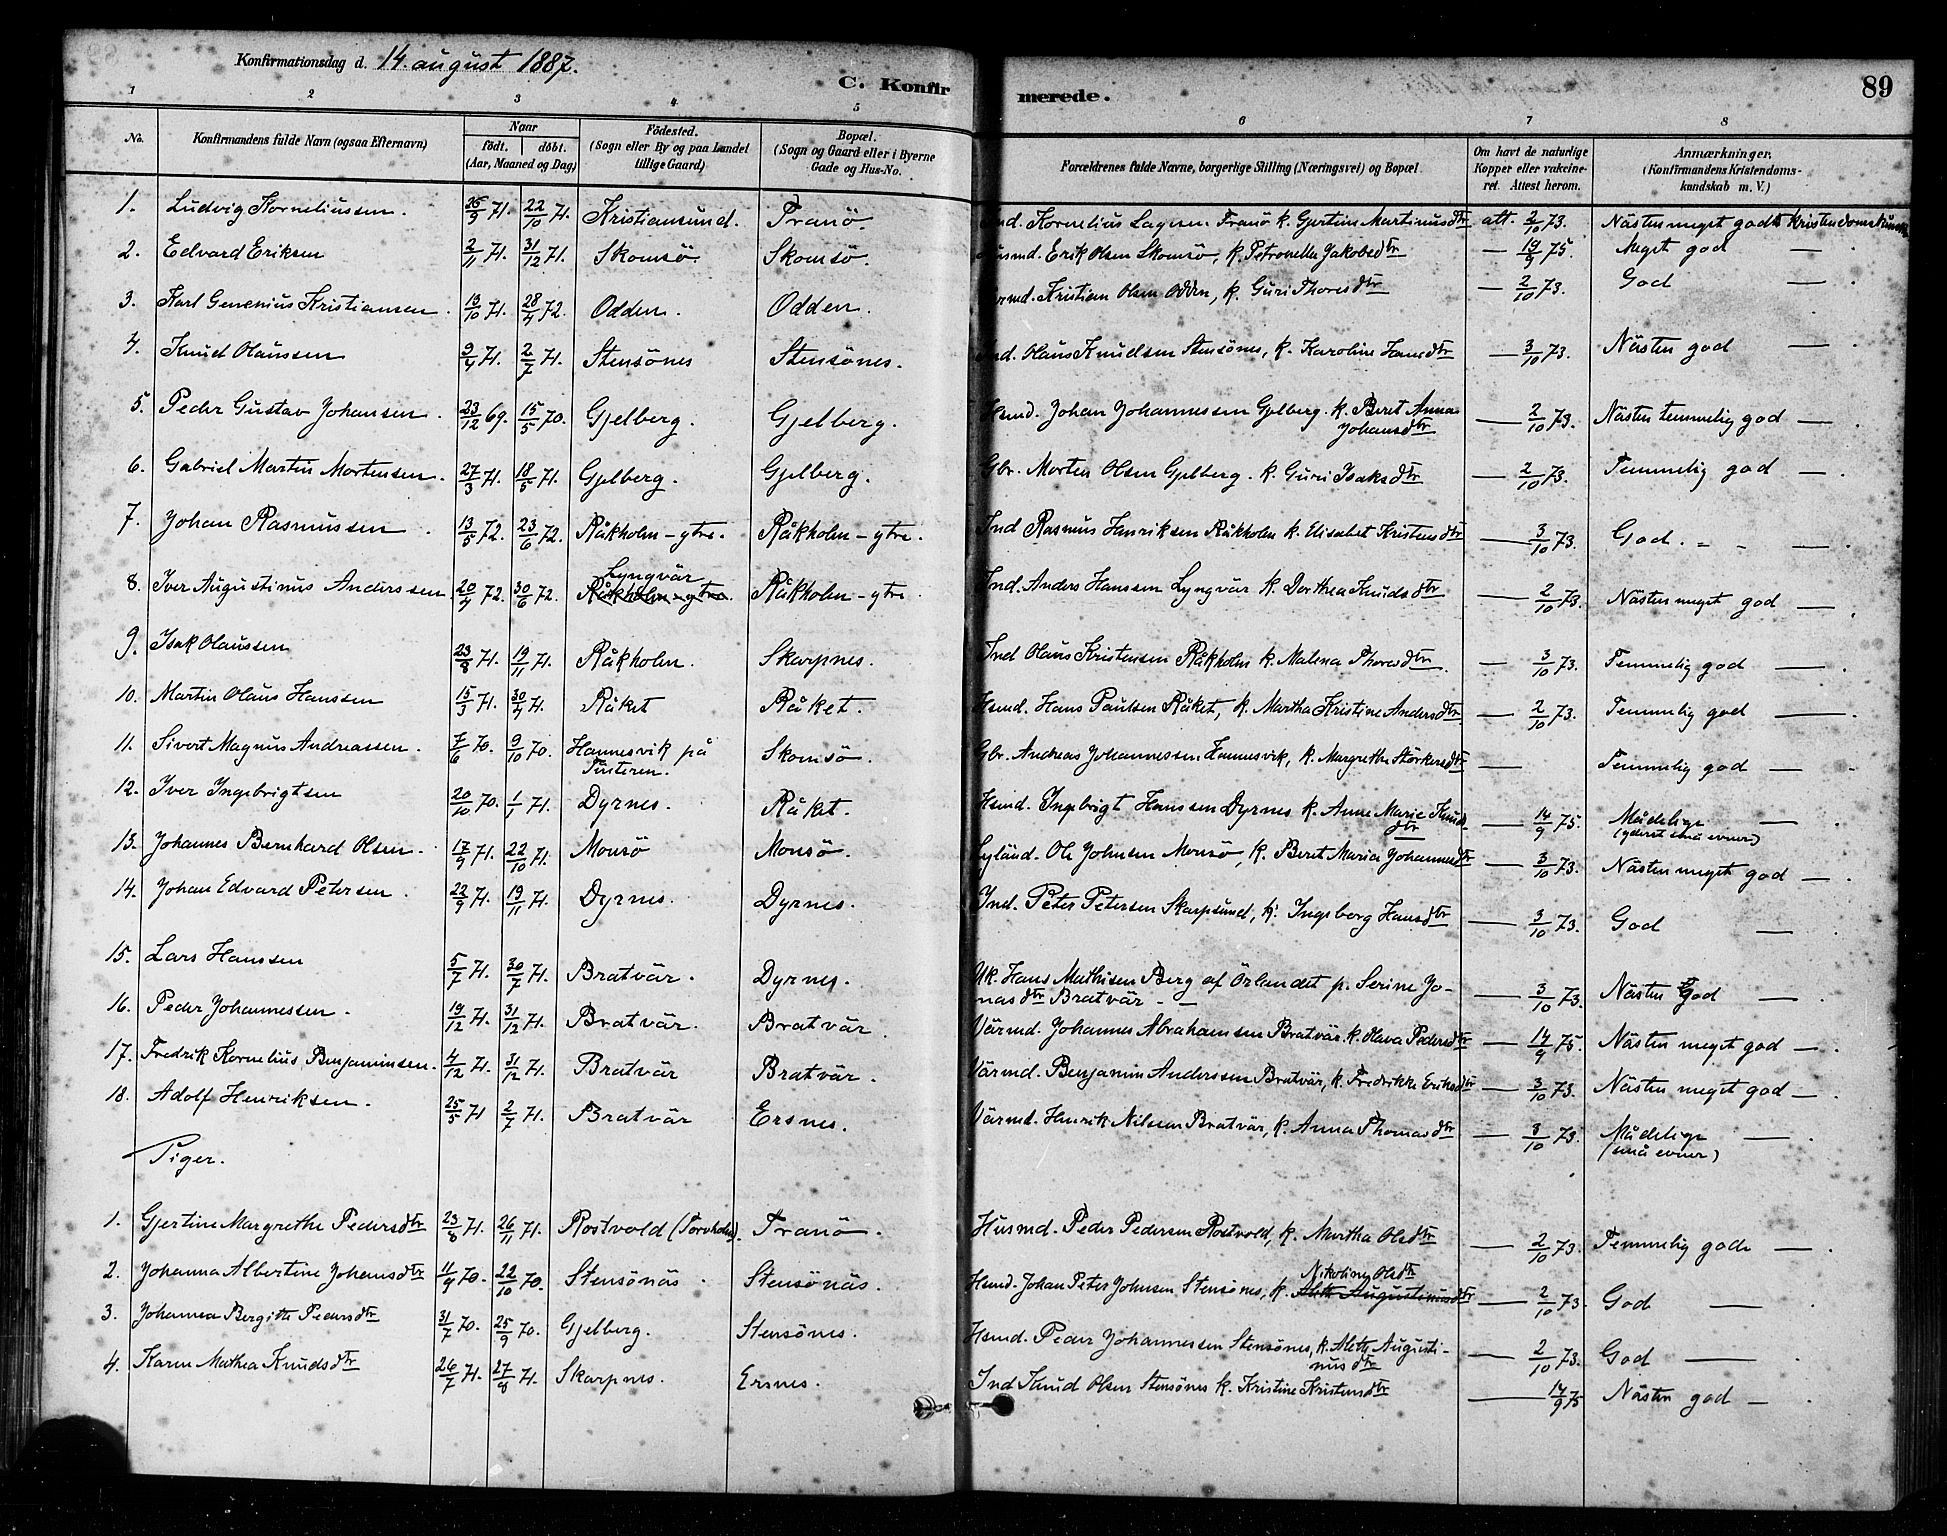 Konfirmationsdag d. 14. august 1887.
C. Konfirmerede.
89
1 2 3 4 5 6 7 8
No. Konfirmandens fulde Navn (ogsaa Efternavn) Naar födt. döbt. (Aar, Maaned og Dag) Födested. (Sogn eller By og paa Landet tillige Gaard) Bopæl. (Sogn og Gaard eller i Byerne Gade og Hus-No. Forældrenes fulde Navne, borgerlige Stilling (Næringsvei) og Bopæl Om havt de naturlige Kopper eller vakcineret. Attest herom. Anmærkninger. (Konfirmandens Kristendomskundskab m. V.)
1. Ludvig Korneliussen. 25/9 71. 22/10 71. Kristiansund. Tranö. Ind. Kornelius Tranö k. Gjertine Martinusdtr att. 2/10 73. Nästen meget godt Kristendomskundsk
2. Edvard Eriksen 2/11 71. 31/12 71. Skomsö. Skomsö. Husmd. Erik Olsen Skomsö, k. Petronelle Jakobsdtr — 19/9 75. Meget god — .
3. Karl Genenius Kristiansen. 13/10 71. 28/4 72. Odden. Odden. Kristian Olsen Odden, k. Guri Thoresdtr — 2/10 73. God — .
4. Knud Olaussen 9/4 71. 2/7 71. Stensönes Stensönes. Ind. Olaus Knudsen Stensönes, k. Karoline Hansdtr — 3/10 73. Nästen god — .
5. Peder Gustav Johansen. 23/12 69. 15/5 70. Gjelberg. Gjelberg. Hsmd. Johan Johannessen Gjelberg. k. Beret Anna Johansdtr — 2/10 73. Nästen temmelig god — .
6. Gabriel Martin Mortensen. 27/3 71. 18/5 71. Gjelberg. Gjelberg. Gbr. Morten Olsen Gjelberg. k. Guri Isaksdtr — 2/10 73. Temmelig god — .
7. Johan Rasmussen. 13/5 72. 23/6 72. Råkholm - ytre. Råkholm - ytre. Ind Rasmus Henriksen Råkholm k. Elisabet Kristensdtr — 3/10 73. God. — .
8. Iver Augustinus Anderssen 20/4 72. 30/6 72. Lyngvär Råkholm - ytre. Råkholm - ytre. Ind. Anders Hanssen Lyngvär k. Dorthea Knudsdtr — 2/10 73. Nästen meget god — .
9. Isak Olaussen 23/8 71. 19/11 71. Råkholm. Skarpnes. Ind Olaus Kristensen Råkholm k. Malena Thoresdtr. — 3/10 73. Temmelig god — .
10. Martin Olaus Hanssen 15/3 71. 30/4 71. Råket Råket. Hsmd. Hans Paulsen Råket, k. Martha Kristine Andersdtr — 2/10 73. Temmelig god — .
11. Sivert Magnus Andreassen. 7/6 70. 9/10 70. Hannesvik på Tusteren. Skomsö. Gbr. Andreas Johannessen Hannesvik, k. Margrethe Störkersdtr — Temmelig god — .
12. Iver Ingebrigtsen 20/10 70. 1/1 71. Dyrnes. Råket. Hsmd. Ingebrigt Hanssen Dyrnes k. Anne Marie Knudsdtr — 14/9 75. Mådelige — (yderst små evner)
13. Johannes Bernhard Olsen. 17/9 71. 22/10 71. Monsö Monsö. Ole Johnsen Monsö, k. Beret Maria Johannesdtr — 3/10 73. Nästen meget god — .
14. Johan Edvard Petersen. 22/9 71. 19/11 71. Dyrnes. Dyrnes. Ind. Peter Petersen Skarpsund, k. Ingeborg Hansdtr — 3/10 73. God — .
15. Lars Hanssen 5/7 71. 30/7 71. Bratvär. Dyrnes. Uk. Hans Mathisen Berg af Örlandet p. Serine Jonasdtr Bratvär - — — 3/10 73. Nästen god — .
16. Peder Johannessen. 19/12 71. 31/12 71. Bratvär. Bratvär. Värmd. Johannes Abrahamsen Bratvär. k. Olava Pedersdtr — 14/9 75. Nästen meget god — .
17. Fredrik Kornelius Benjaminsen. 4/12 71. 31/12 71. Bratvär Bratvär. Värmd. Benjamin Anderssen Bratvär, k. Fredrikke Eriksdtr — 3/10 73. Nästen meget god — .
18. Adolf Henriksen. 25/5 71 2/7 71. Bratvär Ersnes. Värmd. Henrik Nilssen Bratvär, k. Anna Thomasdtr — 3/10 73. Mådelige — . (små evner)
Piger.
1. Gjertine Margrethe Pedersdtr 23/8 71. 26/11 71. Rostvold (Torvholm). Tranö. Husmd. Peder Pedersen Rostvold, k. Martha Olsdtr — 2/10 73. Temmelig gode — .
2. Johanna Albertine Johansdtr 11/9 70. 22/10 70. Stensönäs. Stensönäs. Hsmd. Johan Peter Johnsen Stensönes, k. Nikoline Olsdtr Aleth Augustinusdtr — 2/10 73. God — .
3. Johanna Bergitte Pedersdtr 31/7 70. 25/9 70. Gjelberg. Stensönes. Hsmd. Peder Johannessen Stensönes, k. Aleth Augustinusdtr — 2/10 73. God — .
4. Karen Mathea Knudsdtr 26/7 71. 27/8 71. Skarpnes. Ersnes. Ind Knud Olsen Stensönes k. Kristine Kristensdtr — 14/9 75 Nästen god — .